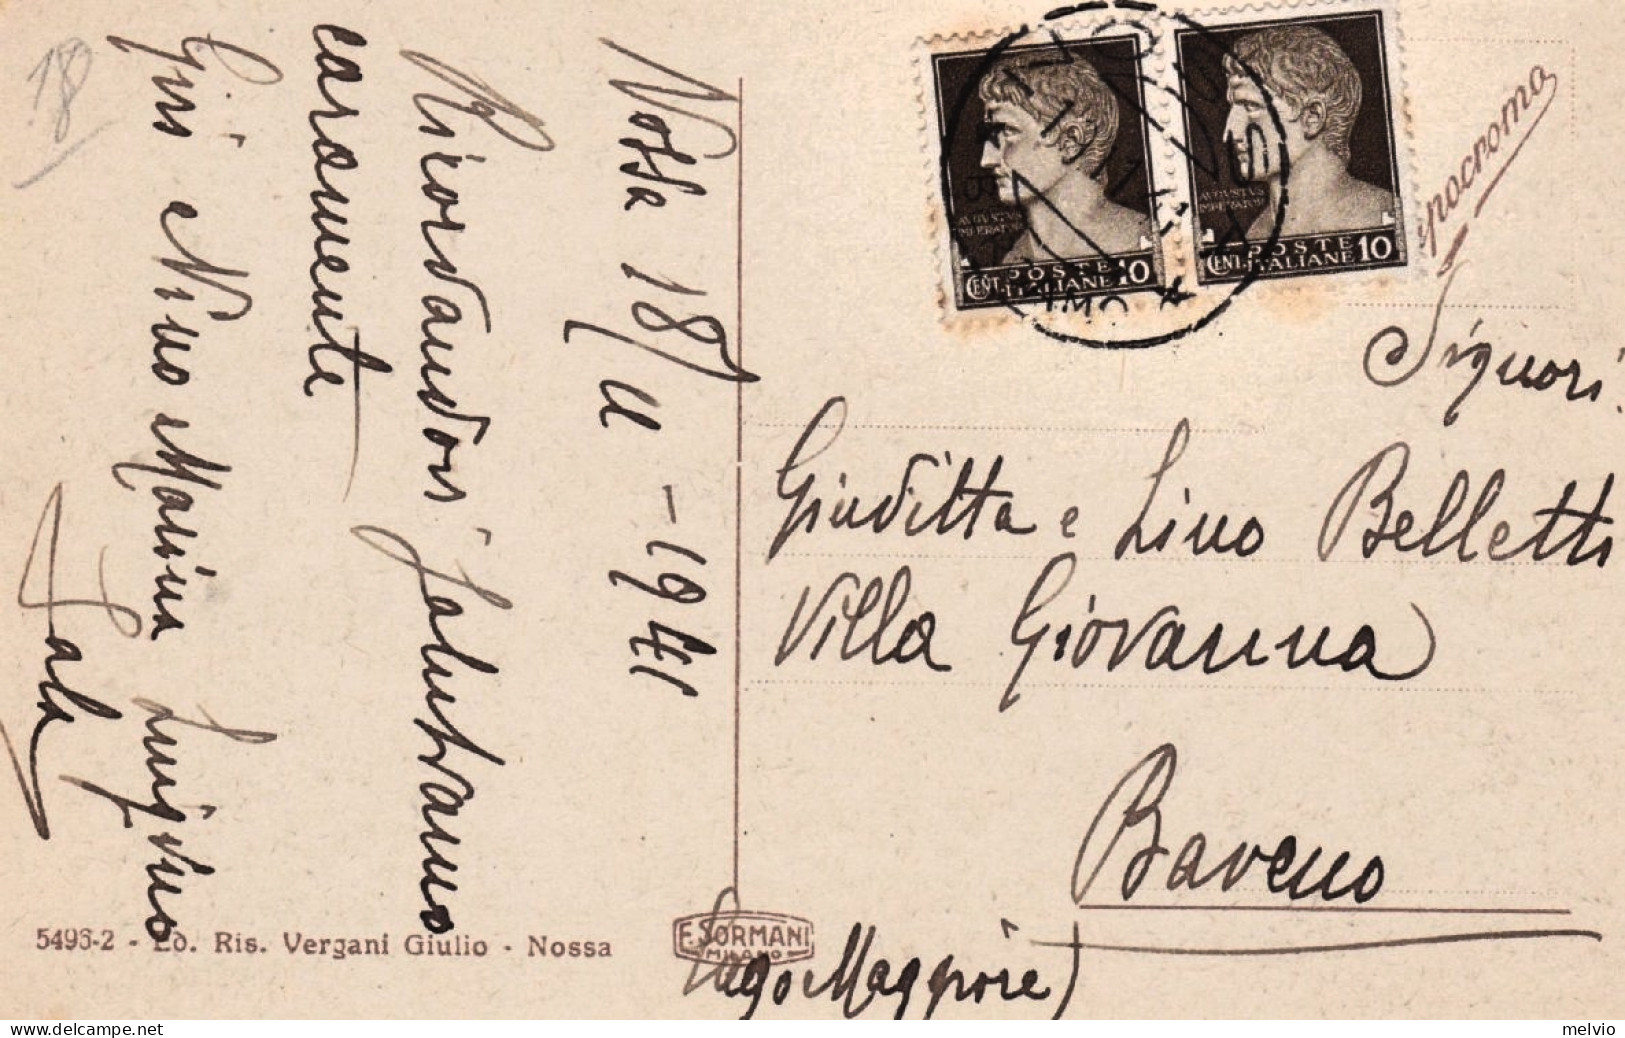 18
Nossa 18/II - 1941
Ricordandovi salutiamo
caramente
Gisi e Nino Marina Luigino
Sala
AVGVSTVS
IMPERATOR
POSTE
CENT. ITALIANE 10
AVGVSTVS
IMPERATOR
POSTE
CENT. ITALIANE 10
Signori
Giuditta e Lino Belletti
Villa Giovanna
Baveno
(Lago Maggiore)
5496-2 - Ed. Ris. Vergani Giulio - Nossa
F. SORMANI
MILANO
melvio